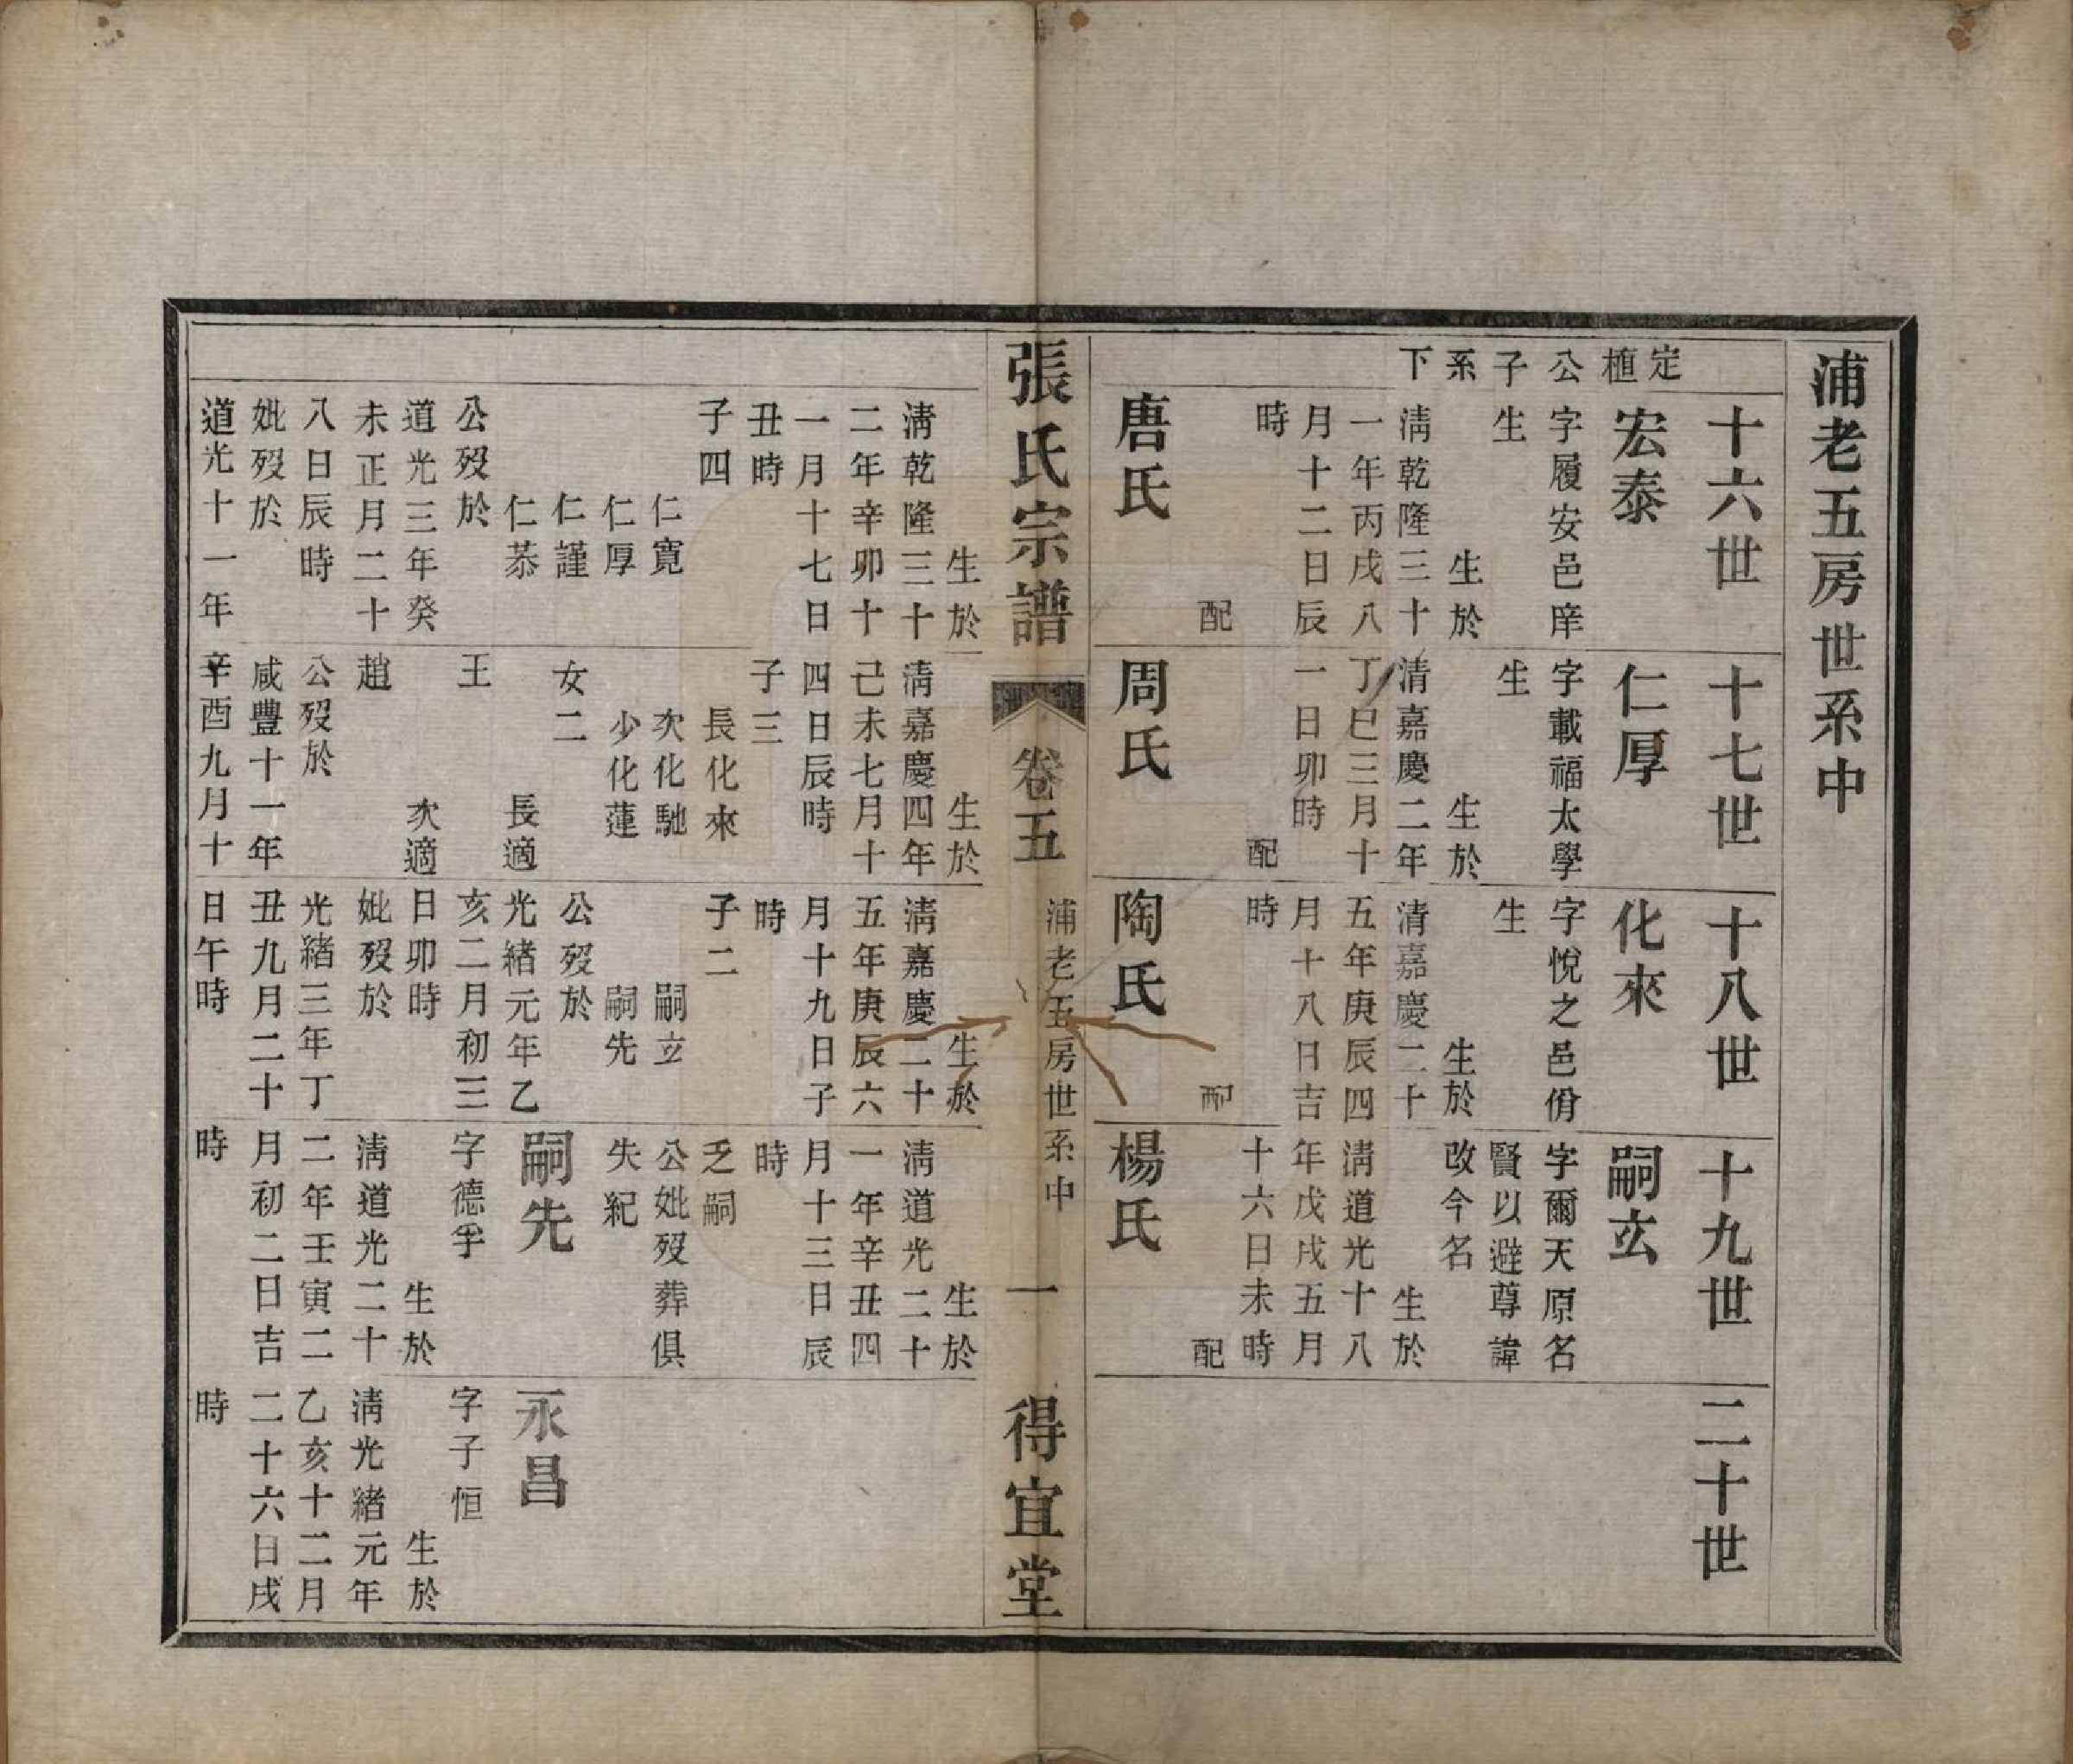 浦老五房世系中
定植公子系下
十六世
宏泰
字履安邑庠
生
生於
清乾隆三十
一年丙戌八
月十二日辰
時
配
唐氏
十七世
仁厚
字載福太學
生
生於
清嘉慶二年
丁巳三月十
一日卯時
配
周氏
十八世
化來
字悅之邑佾
生
生於
清嘉慶二十
五年庚辰四
月十八日吉
時
配
陶氏
十九世
嗣玄
字爾天原名
賢以避尊諱
改今名
生於
清道光十八
年戊戌五月
十六日未時
配
楊氏
二十世
張氏宗譜
卷五
浦老五房世系中
一
得宜堂
生於
清乾隆三十
二年辛卯十
一月十七日
丑時
子四
仁寬
仁厚
仁謹
仁恭
公歿於
道光三年癸
未正月二十
八日辰時
妣歿於
道光十一年
生於
清嘉慶四年
己未七月十
四日辰時
子三
長化來
次化馳
少化蓮
女二
長適
王
次適
趙
公歿於
咸豐十一年
辛酉九月十
生於
清嘉慶二十
五年庚辰六
月十九日子
時
子二
嗣玄
嗣先
公歿於
光緒元年乙
亥二月初三
日卯時
妣歿於
光緒三年丁
丑九月二十
日午時
生於
清道光二十
一年辛丑四
月十三日辰
時
乏嗣
公妣歿葬俱
失紀
嗣先
字德孚
生於
清道光二十
二年壬寅二
月初二日吉
時
永昌
字子恒
生於
清光緒元年
乙亥十二月
二十六日戌
時